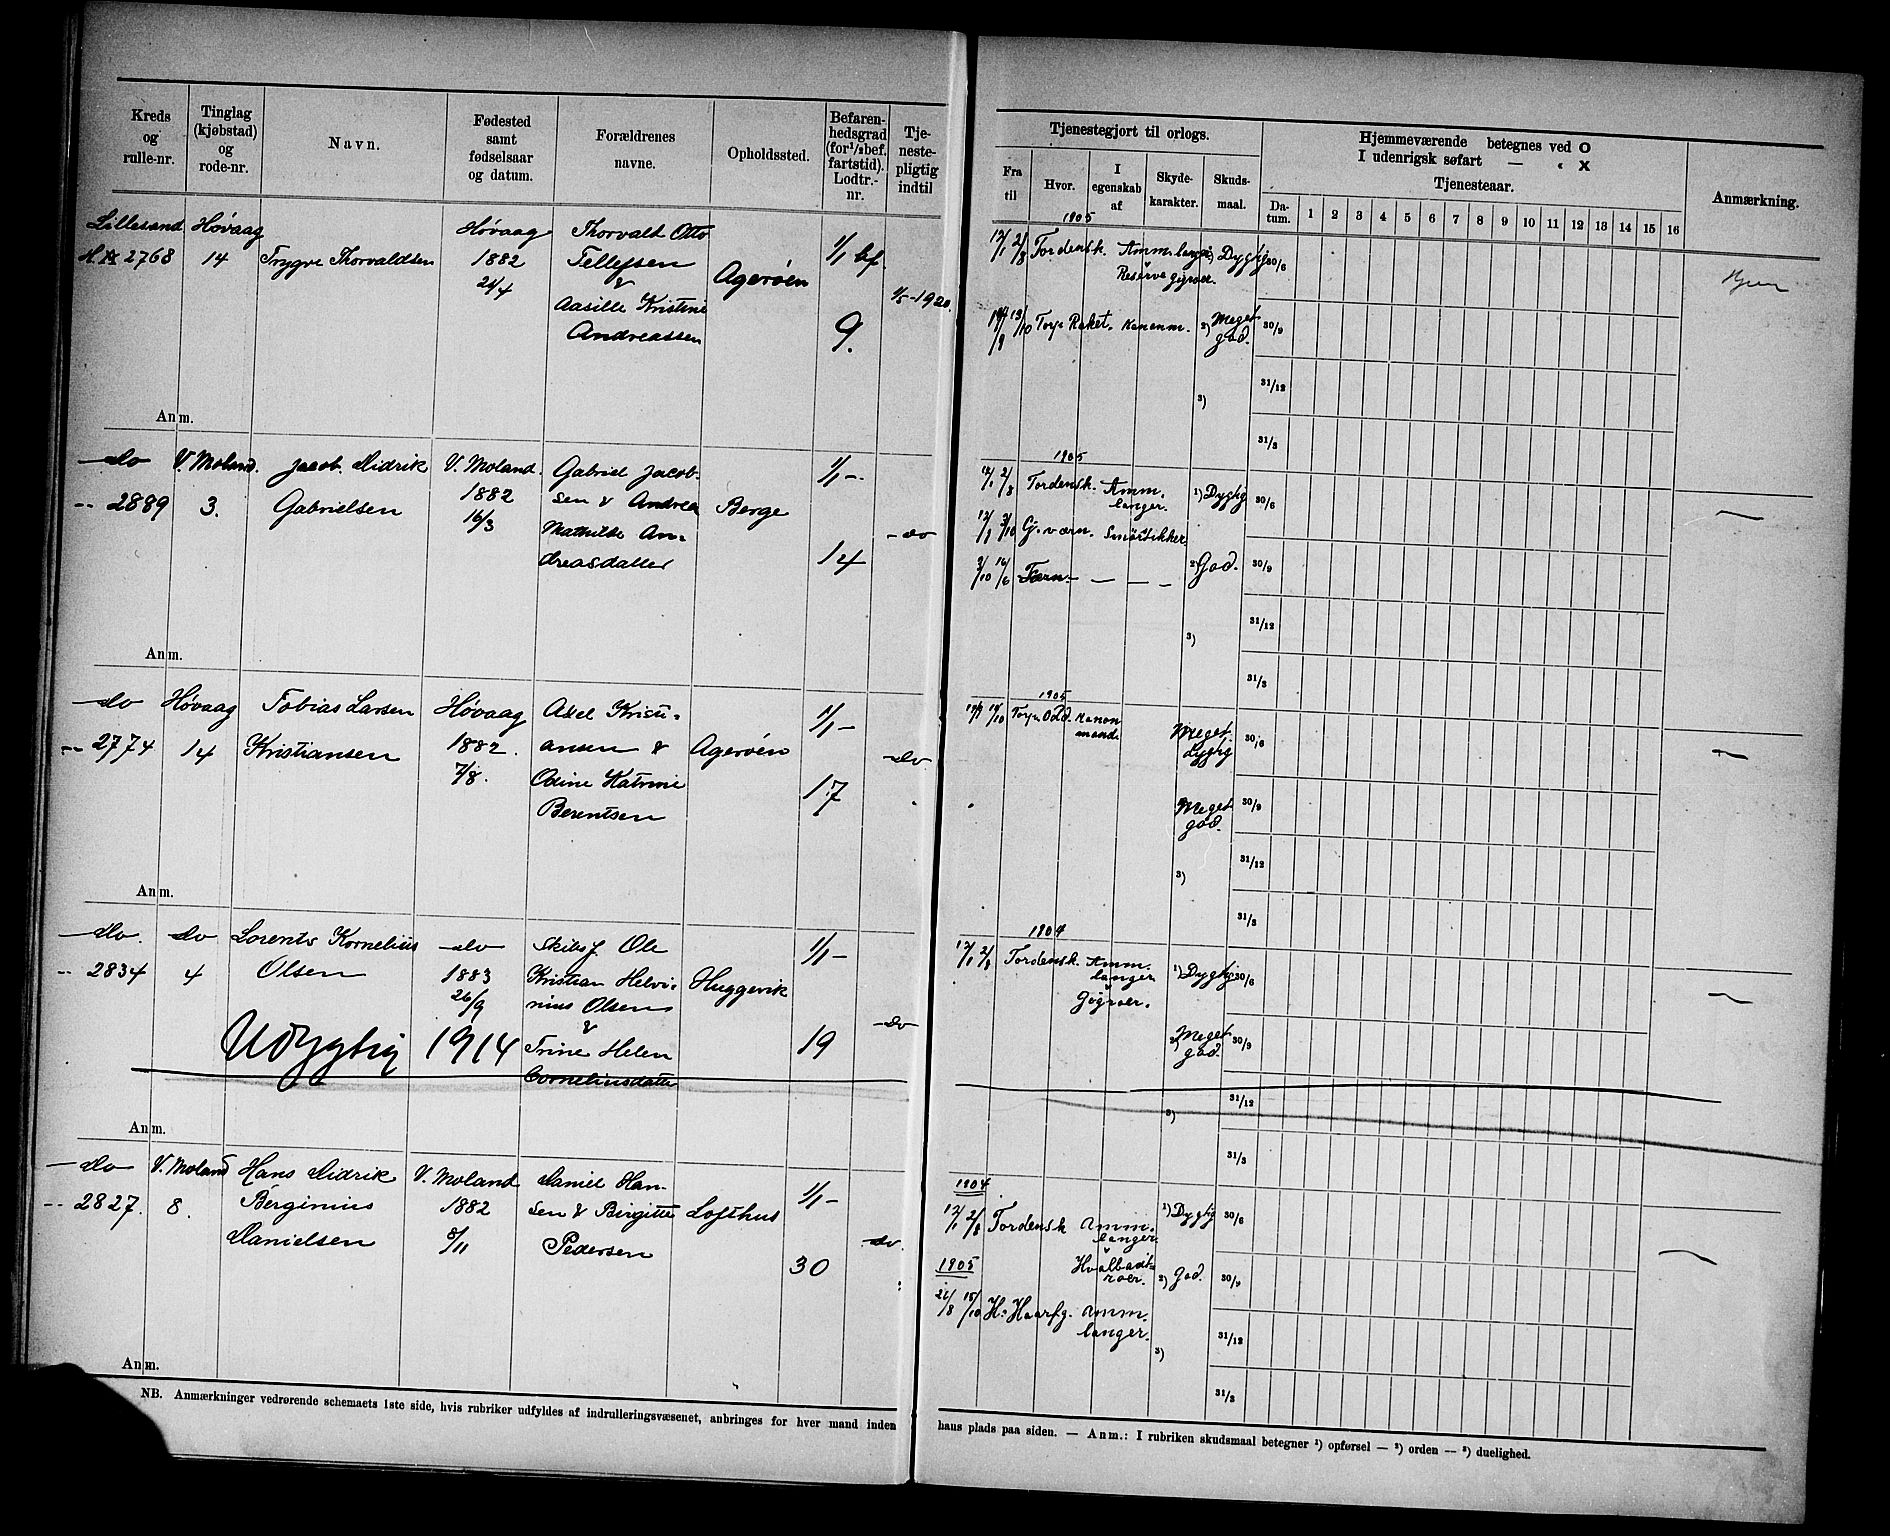 Kreds og rulle-nr.
Tinglag (kjøbstad) og rode-nr.
Navn.
Fødested samt fødselsaar og datum.
Forældrenes navne.
Opholdssted.
Befaren-hedsgrad (for 1/2 bef. fartstid). Lodtr.-nr.
Tje-neste-pligtig indtil
Tjenestegjort til orlogs.
Fra til
Hvor.
I egenskab af
Skyde-karakter.
Skuds-maal.
Hjemmeværende betegnes ved O
I udenrigsk søfart — " X
Tjenesteaar.
Da-tum. 1 2 3 4 5 6 7 8 9 10 11 12 13 14 15 16
Anmærkning.
Lillesand Høvaag Høvaag Thorvald Otto
2768 14 Trygve Thorvaldsen 1882 Tellefsen 1/1 bf.
24/4 & Agerøen
Aasille Kristine 1/5-1920.
Andreassen 9.
1905
12/1 2/8 Tordensk. Ammlanger Dygtig 30/6
Reserve gigroer.
13/10 Torp. Raket. Kanonm. 2) Meget god. 30/9
3) 31/12
31/3
Hjem
Anm.
do V. Moland. Jacob Didrik V. Moland. Gabriel Jacob- 1/1 -
-- 2889 3. Gabrielsen 1882 sen & Andrea Berge
16/3 Mathilde An- do
dreasdatter 14
1905
12/1 2/8 Tordensk. Amm. langer. 1) Dygtig 30/6
3/10 Gj. værn. Smørstikker.
3/10 16/6 Færn. — — — 2) God. 30/9
3) 31/12
31/3
Anm.
do Høvaag Tobias Larsen Høvaag Axel Kristi- 1/1 -
-- 2774 14 Kristiansen 1882. ansen & Agerøen
7/8. Odine Katrine do
Berentsen 17
1905
Torp. Odd. Kanon mand. Meget dygtig 30/6
Meget god. 30/9
3) 31/12
31/3
Anm.
do. do Lorents Kornelius do Skibsf. Ole 1/1 -
-- 2834 4 Olsen 1883 Kristian Helvi- Huggevik
26/9 nius Olsen
& do
Udygtig 1914 Trine Helen 19
Corneliusdatter
1904
12/1 2/8 Tordensk. Amm. langer 1) Dygtig 30/6
Gigroer.
2) Meget god. 30/9
3) 31/12
31/3
Anm.
do V. Moland Hans Didrik V. Moland Daniel Han- 1/1 -
-- 2827. 8. Berginius 1882 sen & Birgitte Lofthus
Danielsen 5/11 Pedersen do.
30
1904
12/1 2/8 Tordensk Amm. langer. 1) Dygtig 30/6
Hvalbaadroer.
1905
2) God. 30/9
21/8 15/10 H. Haarfg. Amm. langer.
3) 31/12
31/3
Anm.
NB. Anmærkninger vedrørende schemaets 1ste side, hvis rubriker udfyldes af indrulleringsvæsenet, anbringes for hver mand inden
hans plads paa siden. — Anm.: I rubriken skudsmaal betegner 1) opførsel — 2) orden — 3) duelighed.